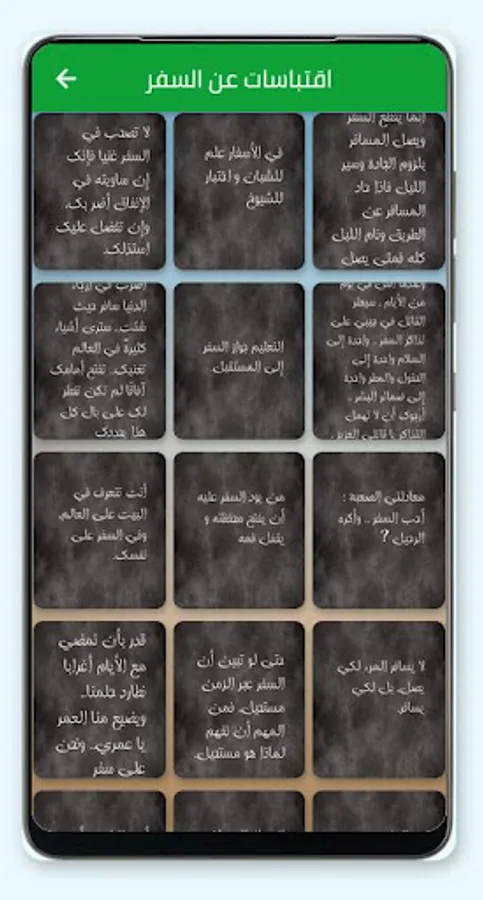 اقتباسات عن السفر
إنما يقطع السفر
ويصل المسافر
بلزوم الجادة وسير
الليل فإذا حاد
المسافر عن
الطريق ونام الليل
كله فمتى يصل
في الأسفار علم
للشبان و اختبار
للشيوخ
لا تصحب في
السفر غنيا فإنك
إن ساويته في
الإنفاق أضر بك،
وإن تفضل عليك
استذلك.
من الأيام .. سيعثر
القاتل في جيبي على
تذاكر السفر .. واحدة إلى
السلام واحدة إلى
الحقول والمطر واحدة
إلى ضمائر البشر ..
أرجوك أن لا تهمل
التذاكر يا قاتلي العزيز .
التعليم جواز السفر
إلى المستقبل.
الدنيا سافر حيث
شئت.. سترى أشياء
كثيرةً في العالم
تغنيك.. تفتح أمامك
آفاقًا لم تكن تخطر
لك على بال كل
هذا يجددك
معادلتي الصعبة :
أحب السفر .. وأكره
الرحيل ?
من يود السفر عليه
أن يفتح محفظته و
يقفل فمه
أنت تتعرف في
البيت على العالم،
وفي السفر على
نفسك.
لا يسافر المرء لكي
يصل، بل لكي
يسافر.
حتى لو تبين أن
السفر عبر الزمن
مستحيل، فمن
المهم أن نفهم
لماذا هو مستحيل.
قدر بأن نمضي
مع الأيام أغرابا
نطارد حلمنا..
ويضيع منا العمر
يا عمري.. ونحن
على سفر